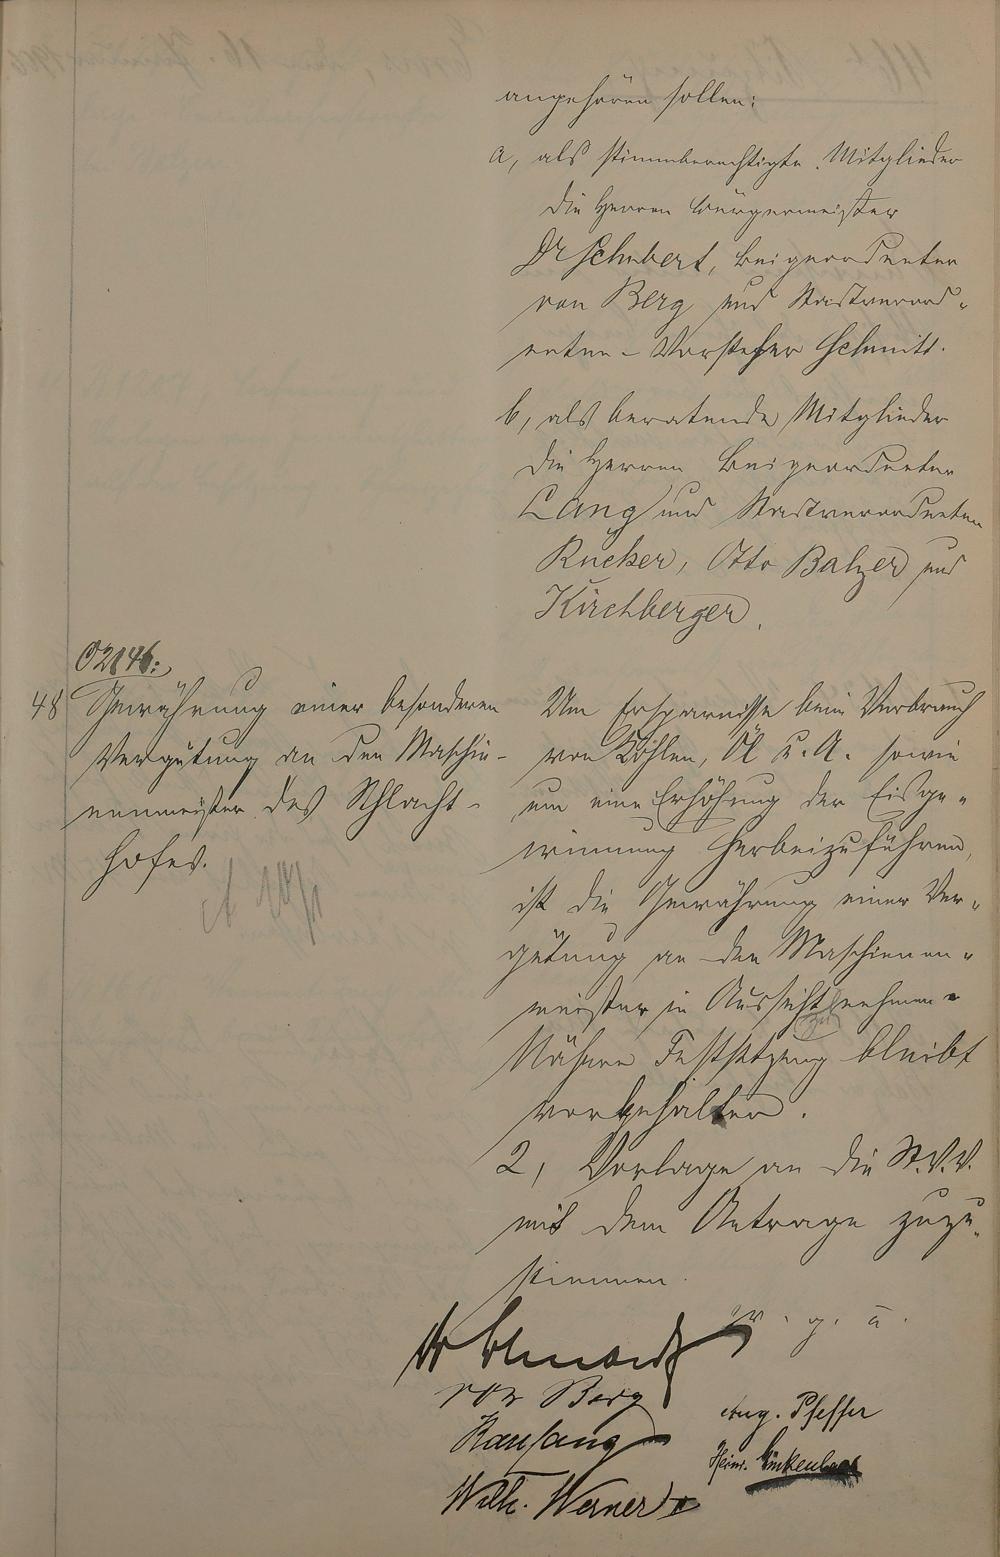 angehören sollen:
a, als stimmberechtigte Mitglieder
die Herren Bürgermeister
Dr Schubert, Beigeordneter
von Berg und Stadtverord-
neten-Vorsteher Schmitt.
b, als beratende Mitglieder
die Herren Beigeordneter
Lang und Stadtverordneten
Rücker, Otto Balzer und
Kirchberger.
O2146:
48 Gewährung einer besonderen
Vergütung an den Maschi-
nenmeister des Schlacht-
hofes.
Um Ersparnisse beim Verbrauch
von Kohlen, Öl u. A. sowie
um eine Erhöhung der Eisge-
winnung herbeizuführen,
ist die Gewährung einer Ver-
gütung an den Maschienen-
meister in Aussicht zu nehmen.
Nähere Festsetzung bleibt
vorbehalten.
2, Vorlage an die St.V.V.
mit dem Antrage zuzu-
stimmen.
v. g. u.
von Berg
Aug. Pfeffer
Karl Lang
Heinr.
Wilh. Werner